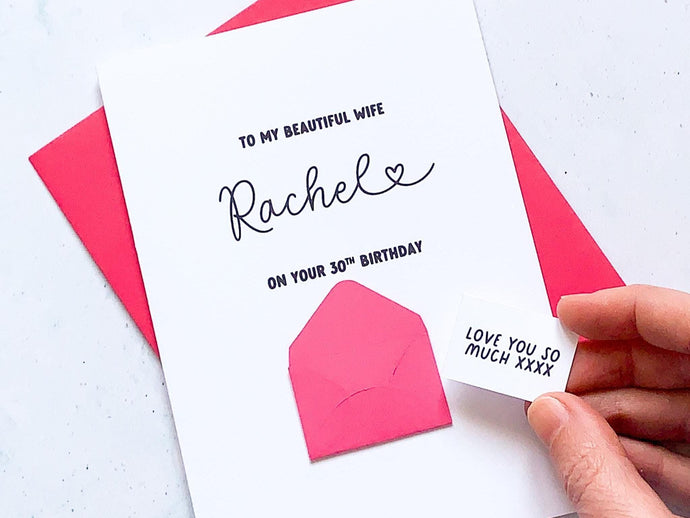 TO MY BEAUTIFUL WIFE
Rachel
ON YOUR 30TH BIRTHDAY
LOVE YOU SO
MUCH XXXX